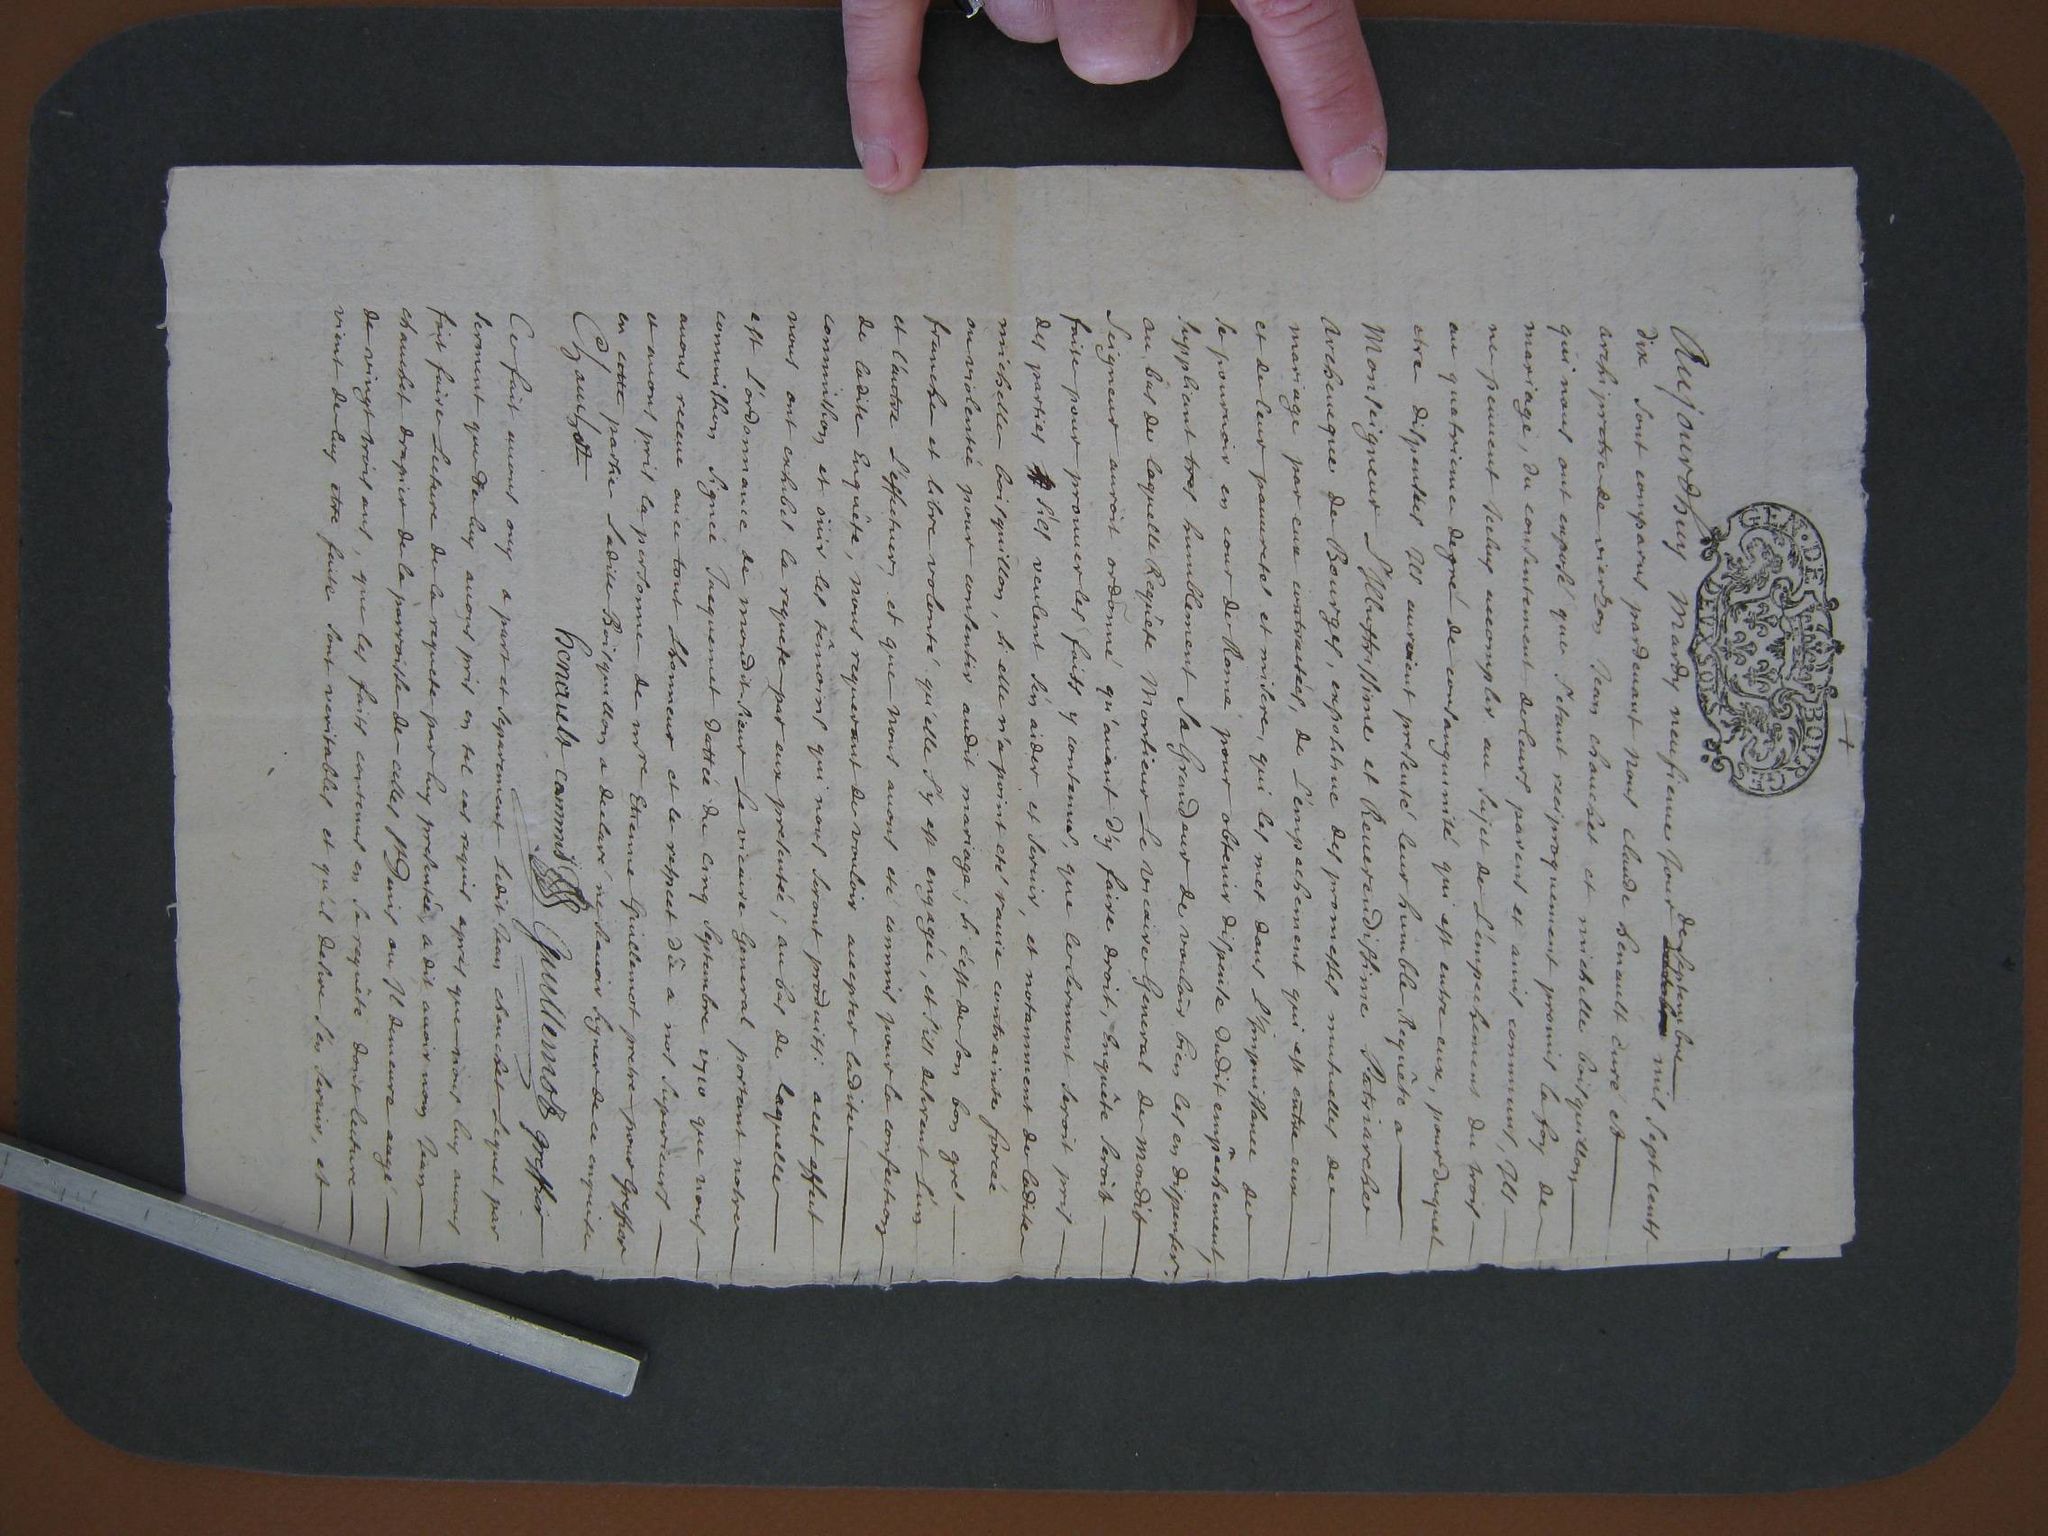 GEN. DE BOURGES
DEUX SOLS
Aujourdhuy Mardy neufieme jour de septembre mil sept cents
dix sont comparus pardevant nous claude henault curé et
archiprestre de vierzon Jean chauchet et michelle boisguillon
qui nous ont exposé que s'etant reciproquement promis la foy de
mariage, du consentement de leurs parents et amis communs, Ils
ne peuvent iceluy accomplir au sujet de L'empechement du trois
au quatrieme degré de consanguinité qui est entre eux, pour duquel
etre dispensés Ils auroient presenté leur humble Requête a
Monseigneur L'Illustrissime et Reverendissime Patriarche
Archeveque de Bourges, expositive des promesses mutuelles de
mariage par eux contractées, de L'empechement qui est entre eux
et de leur pauvreté et misere, qui les met dans L'impuissance de
se pourvoir en cour de Rome pour obtenir dispense dudit empêchement
suppliant tres humblement Sa Grandeur de vouloir bien les en dispenser.
Au bas de laquelle Requête Monsieur Le vicaire General de Mondit
Seigneur auroit ordonné qu'avant d'y faire droit, Enquête seroit
faite pour prouver les faits y contenus, que le serment seroit pris
des parties s'ils veulent s'en aider et servir, et notamment de ladite
michelle boisguillon, si elle n'a point eté ravie contrainte forcée
ou violentée pour consentir audit mariage; si c'est de son bon gré
franche et libre volonté qu'elle s'y est engagée, et s'ils desirent l'un
et l'autre L'effectuer, et que nous avons eté commis pour la confection
de ladite Enquête, nous requerant de vouloir accepter ladite
commission et ouir les temoins qui nous seront produits: a cet effect
nous ont exhibé la requete par eux presentée; au bas de laquelle
est L'ordonnance de mondit sieur Le vicaire General portant notre
commission signée Jacquemet dattée du cinq septembre 1710 que nous
avons receue avec tout L'honneur et le respect dû a nos superieurs
et avons pris la personne de mre Etienne Guillemot pretre pour Greffier
en cette partie Ladite Boisguillon a declaré ne sçavoir signer de ce enquise
Chauchet
henault commis Guillemot greffier
Ce fait avons ouy a part et separement Ledit Jean chauchet Lequel par
serment que de luy avons pris en tel cas requis apres que nous luy avons
fait faire Lecture de la requete par luy presentée, a dit avoir nom Jean
chauchet drapier de la parroisse de celles St Denis ou Il demeure aagé
de vingt trois ans, que les faits contenus en sa requête dont lecture
vient de luy etre faite sont veritables et qu'il desire s'en servir, et